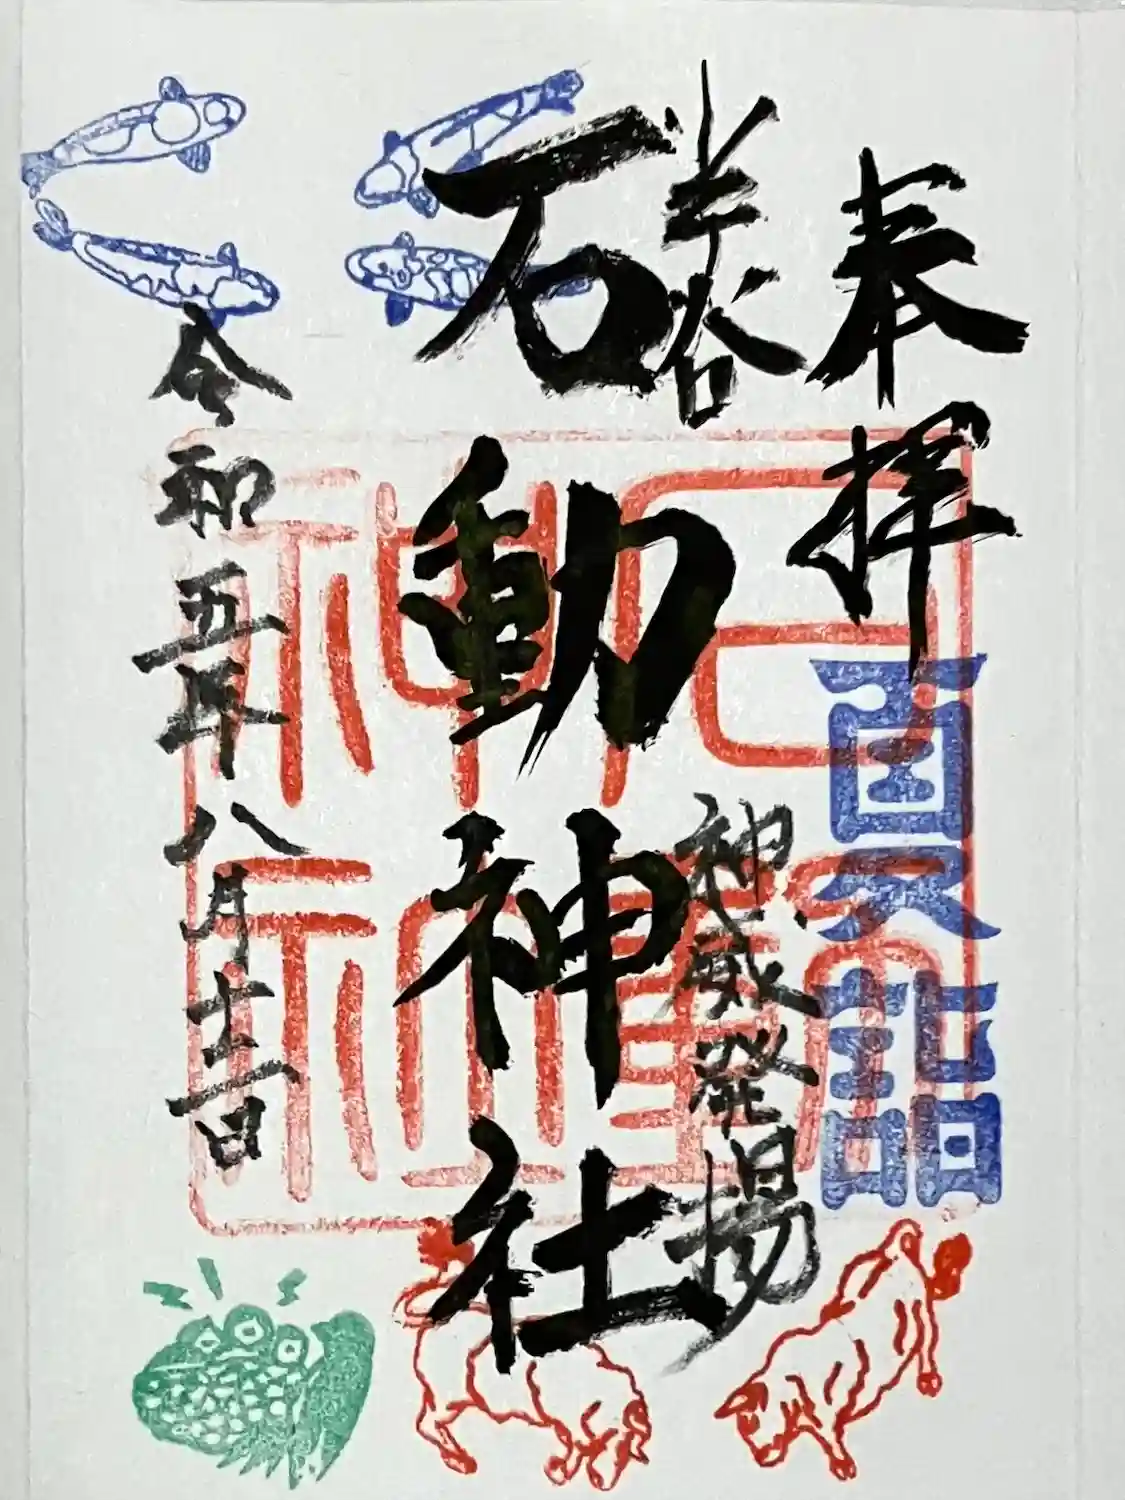 奉拝
小千谷
石動神社
神威発揚
令和五年八月十二日
石動神社